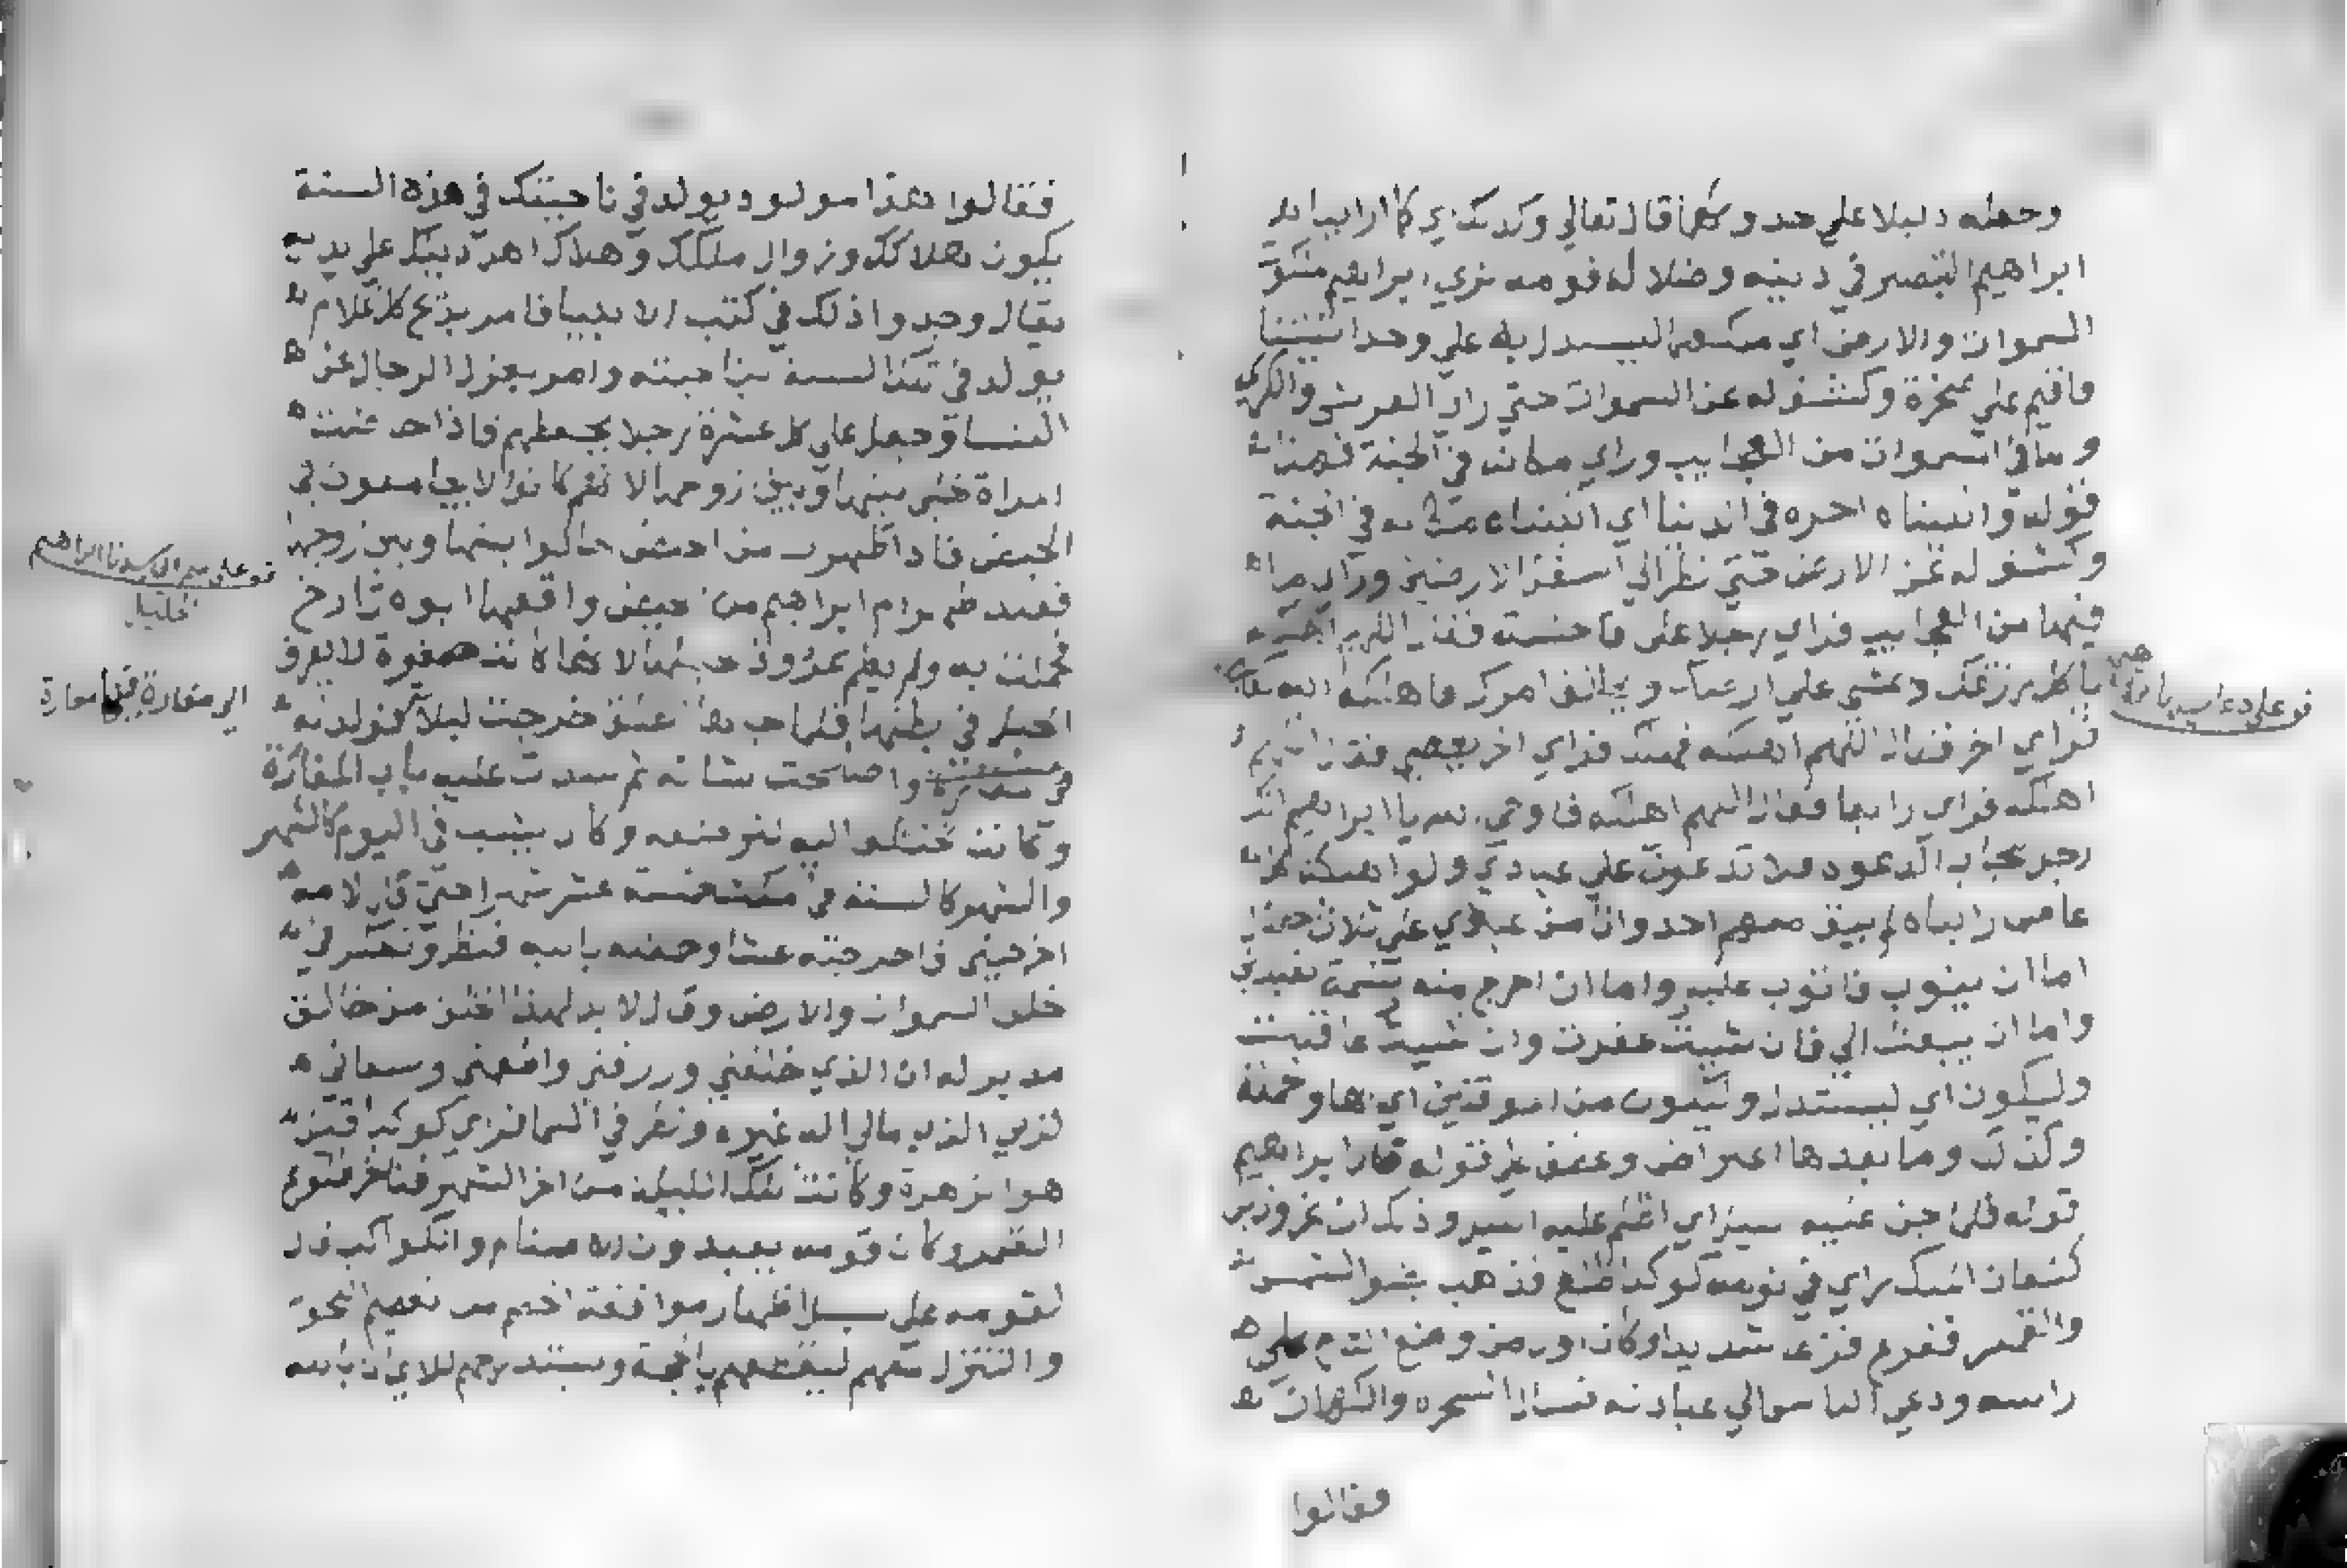 وجعله دليلا على حدوثها قال تعالى وكذلك نري كما ارايناه
ابراهيم التبصر في دينه وضلاله قومه نري ابراهيم ملكوت
السموات والارض اي ملكهما ليستدل به علي وحدانيتنا
فاقيم علي صخرة وكشف له عن السموات حتي راي العرش والكرسي
وما في السموات من العجايب وراي مكانه في الجنة فهذا
قوله واتيناه اجره في الدنيا اي اتيناه مكانه في الجنة
وكشف له عن الارض حتي نظر الي اسفل الارضين وراي ما
فيها من العجايب فراي رجلا علي فاحشة فقال اللهم اهلكه
ياكل رزقك ويمشي علي ارضك ويخالف امرك فاهلكه الله تعالي
فراي اخر فقال اللهم اهلكه فهلك فراي اخر يعصي فقال اللهم
اهلكه فراي رابعا فقال اللهم اهلكه فاوحي الله يا ابراهيم انك
رجل مجاب الدعوه فلا تدعون علي عبادي ولو اهلكنا كل
عاصي رايناه لم يبق منهم احد وانا من عبادي علي ثلاث خصال
اما ان يتوب فاتوب عليه واما ان اخرج منه نسمة تعبدني
واما ان يبعث الي فان شيت غفرت وان شيت عاقبت
وليكون اي ليستدل وليكون من الموقنين اي بها وجملة
وكذلك وما بعدها اعتراض وعطف علي قوله قال ابراهيم
قوله فلما جن عليه الليل اي اظلم عليه الليل وذلك ان نمروذ بن
كنعان الملك راي في نومه كوكبا طلع فذهب بضوء الشمس
والقمر ففزع فزعا شديدا وكان اول من وضع التاج علي
راسه ودعي الناس الي عبادته فسال السحره والكهان
فقالوا
فقالوا هذا مولود يولد في ناحيتك في هذه السنة
يكون هلاكك وزوال ملكك وهلاك اهل دينك علي يديه
يقال وجدوا ذلك في كتب الانبيا فامر بذبح كل غلام
يولد في تلك السنة بناحيته وامر بعزل الرجال عن
النسا وجعل علي كل عشرة رجلا يحفظهم فاذا حاضت
امراة خلي بينها وبين زوجها لانهم كانوا لا يجامعون في
الحيض فاذا طهرت من الحيض حالوا بينها وبين زوجها
فعند طهر ام ابراهيم من حيض واقعها ابوه تارخ
فحملت به ولم يعلم نمروذ بحبلها لانها كانت صغيرة لا يعرف
الحبل في بطنها فلما جاها الطلق خرجت ليلا فولدته
في مغارة واصلحت شانه ثم سدت عليه باب المغارة
وكانت تختلف اليه لتنظر صنعه وكان يشب في اليوم كالشهر
والشهر كالسنة فمكث خمسة عشر شهرا حتي قال لامه
اخرجيني فاخرجته عشا وحملته بامه فنظر وتفكر في
خلق السموات والارض وقال لا بد لهذا الخلق من خالق
مدبر له ان الذي خلقني ورزقني واطعمني وسقاني
لربي الذي مالي اله غيره ونظر في السما فراي كوكبا قيل
هو الزهرة وكانت تلك الليلة من اخر الشهر فتاخر طلوع
القمر وكان قومه يعبدون الاصنام والكواكب فقال
لقومه علي سبيل اظهار موافقة الخصم مع نعم النحو
والتنزل معهم ليقطعهم بالحجة ويستدرجهم للايمان بالله
قف علي ميلاد سيدنا ابراهيم
خليل